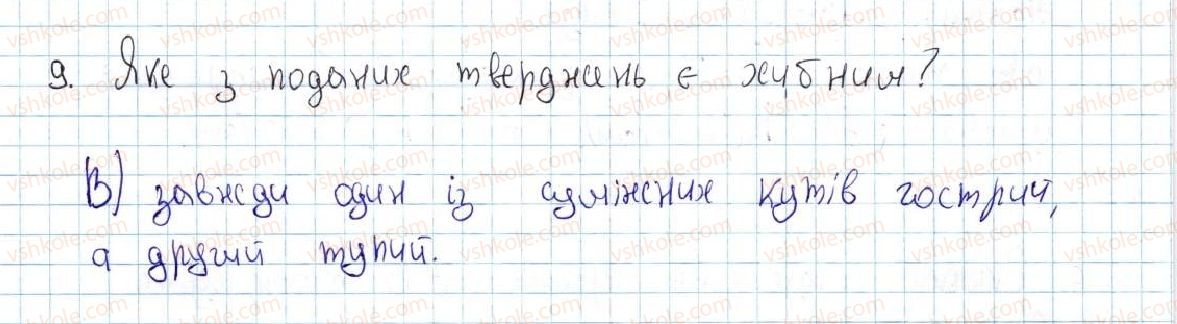 9. Яке з поданих тверджень є хибним?
В) завжди один із суміжних кутів гострий,
а другий тупий.